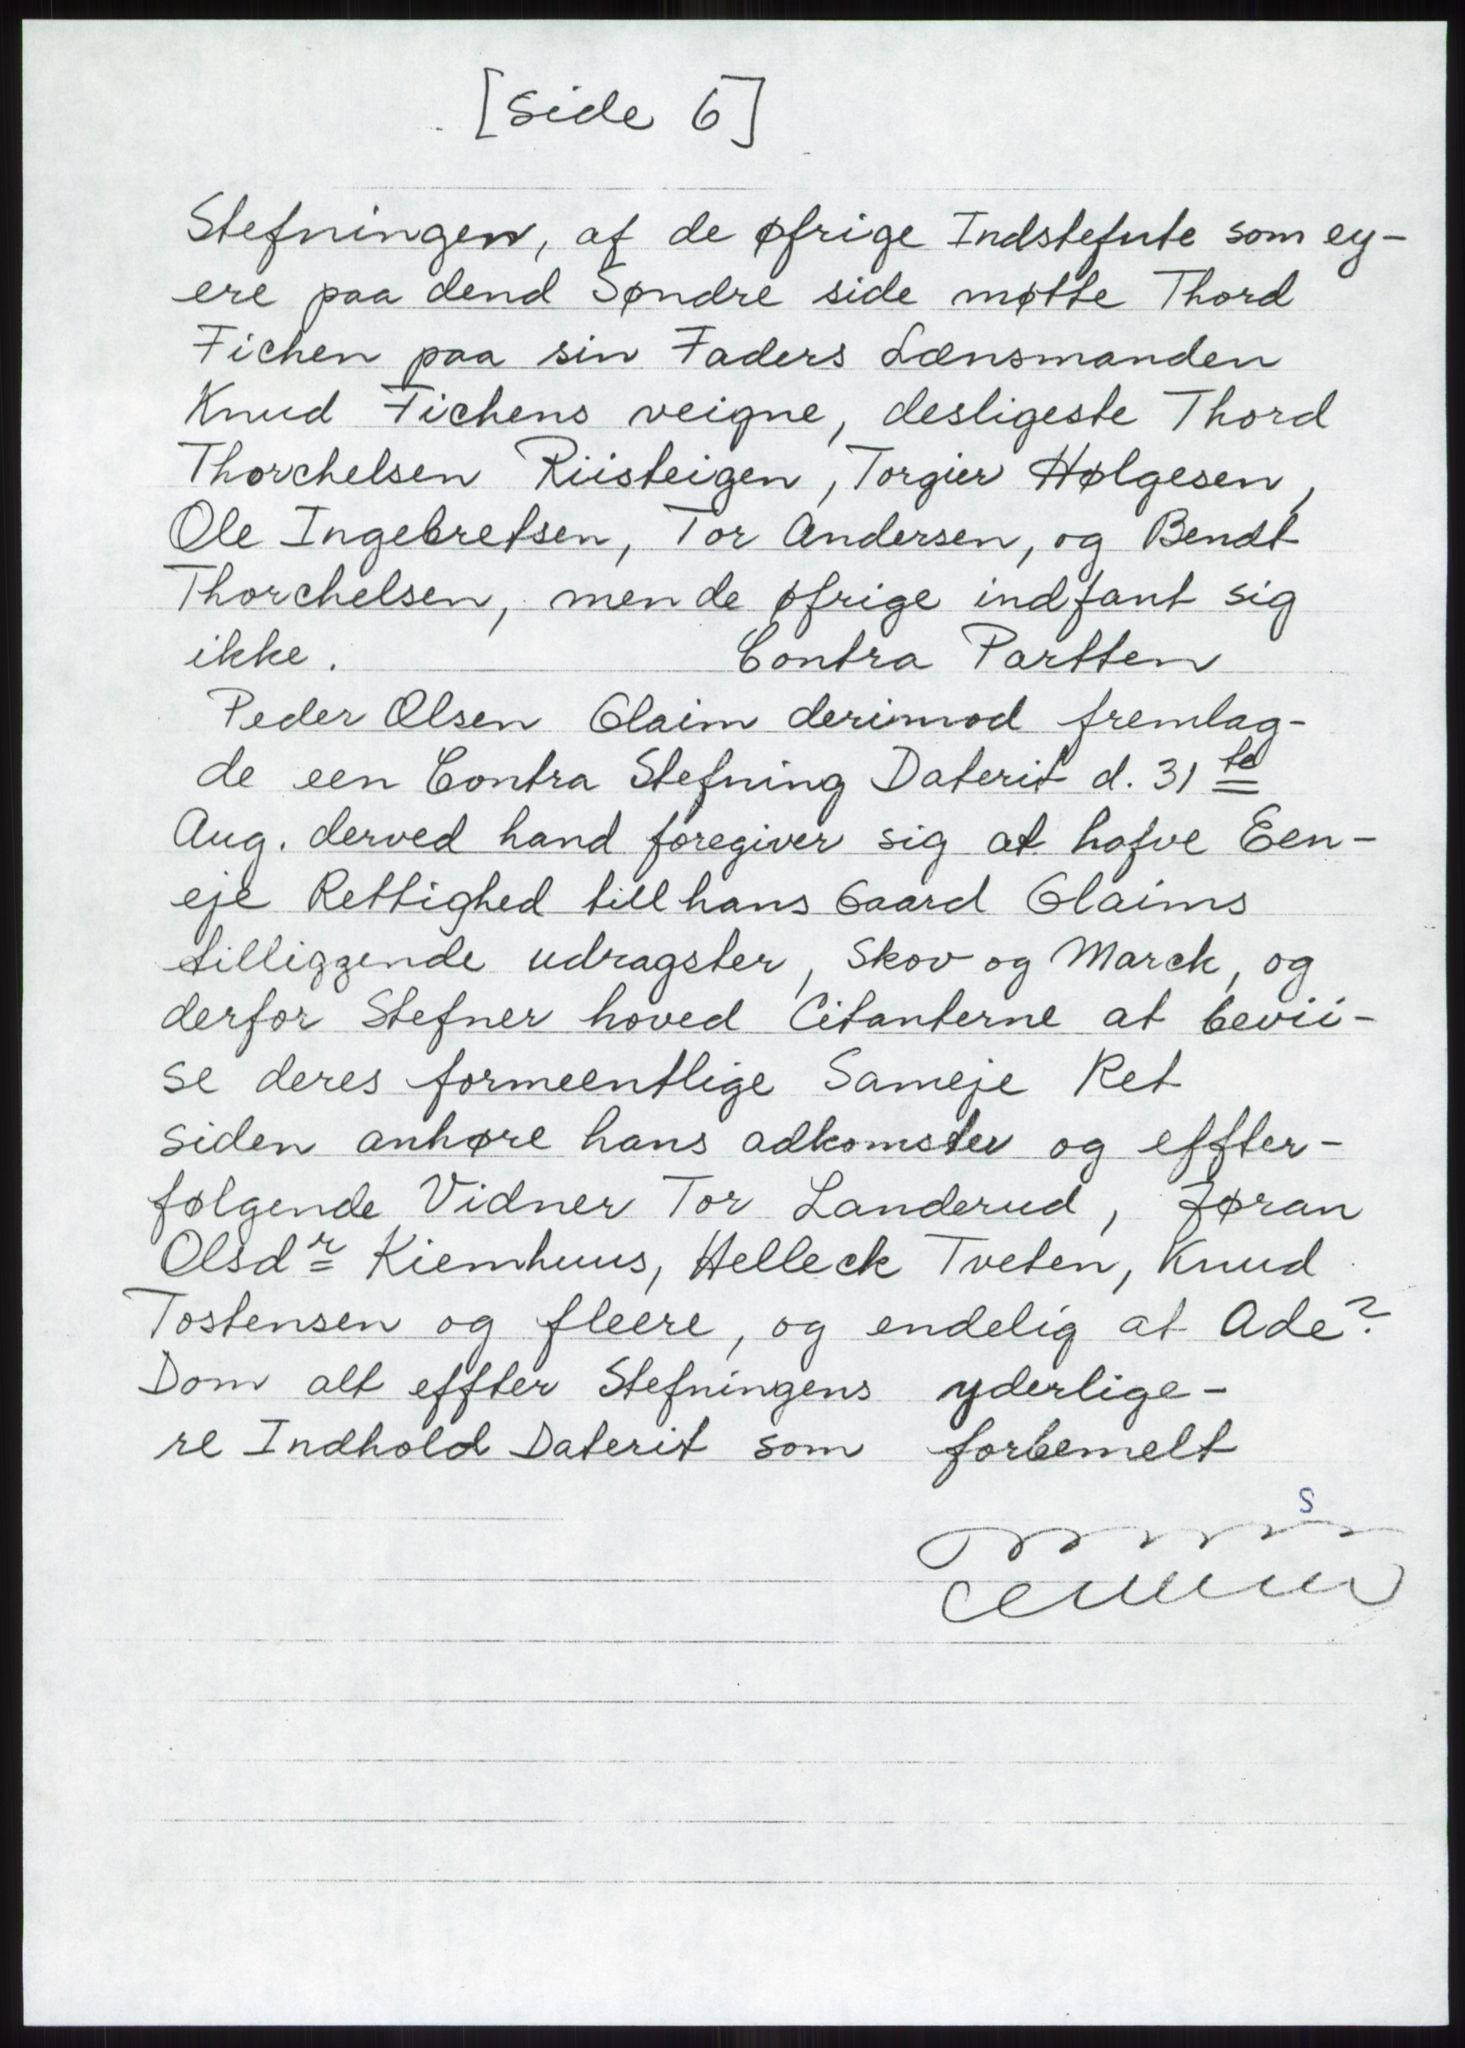 [Side 6]
Stefningen, af de øfrige Indstefnte som ey-
ere paa dend Søndre side møtte Thord
Fichen paa sin Faders Lænsmanden
Knud Fichens veigne, desligeste Thord
Thorchelsen Riisteigen, Torgier Hølgesen,
Ole Ingebretsen, Tor Andersen, og Bendt
Thorchelsen, men de øfrige indfant sig
ikke. Contra Partten
Peder Olsen Glaim derimod fremlag-
de een Contra Stefning Daterit d. 31te
Aug. derved hand foregiver sig at hafve Een-
eje Rettighed till hans Gaard Glaims
tilliggende udragster, Skov og Marck, og
derfor Stefner hoved Citanterne at bevii-
se deres formeentlige Sameje Ret
siden anhøre hans adkomster og effter-
følgende Vidner Tor Landerud, Jøran
Olsdr Kiemhuus, Helleck Tveten, Knud
Tostensen og fleere, og endelig at Ade?
Dom alt effter Stefningens yderlige-
re Indhold Daterit som forbemelt
S